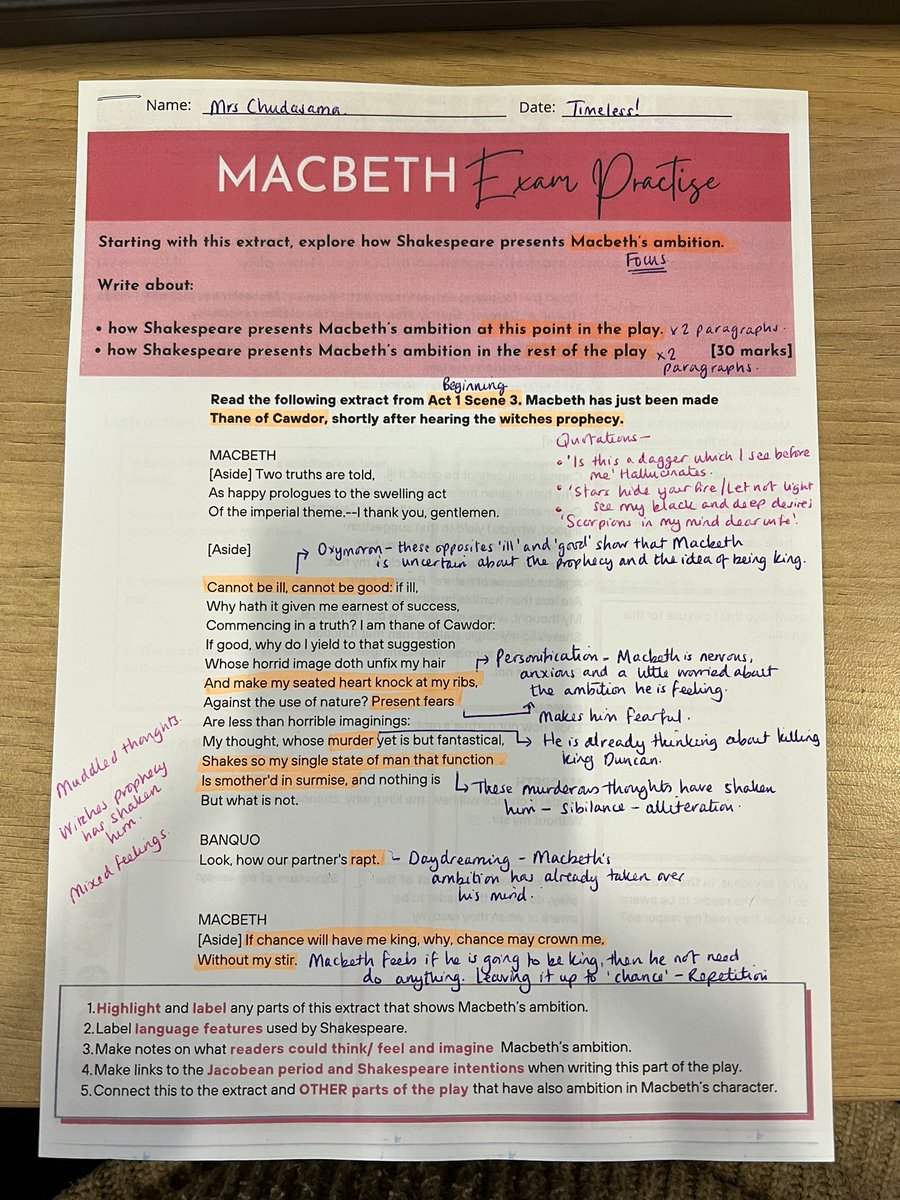 Name: Mrs Chudasama Date: Timeless!
MACBETH Exam Practise
Starting with this extract, explore how Shakespeare presents Macbeth's ambition.
Focus
Write about:
• how Shakespeare presents Macbeth's ambition at this point in the play. x2 paragraphs.
• how Shakespeare presents Macbeth's ambition in the rest of the play x2 [30 marks]
paragraphs.
Beginning
Read the following extract from Act 1 Scene 3. Macbeth has just been made
Thane of Cawdor, shortly after hearing the witches prophecy.
Quotations -
• 'Is this a dagger which I see before
me' Hallucinates.
• 'Stars hide your fire/Let not light
• see my black and deep desires
'Scorpions in my mind dear wife'.
MACBETH
[Aside] Two truths are told,
As happy prologues to the swelling act
Of the imperial theme.--I thank you, gentlemen.
[Aside]
Oxymoron - these opposites 'ill' and 'good' show that Macbeth
is uncertain about the prophecy and the idea of being king.
Cannot be ill, cannot be good: if ill,
Why hath it given me earnest of success,
Commencing in a truth? I am thane of Cawdor:
If good, why do I yield to that suggestion
Whose horrid image doth unfix my hair
And make my seated heart knock at my ribs,
Against the use of nature? Present fears
Are less than horrible imaginings:
My thought, whose murder yet is but fantastical,
Shakes so my single state of man that function
Is smother'd in surmise, and nothing is
But what is not.
Personification - Macbeth is nervous,
anxious and a little worried about
the ambition he is feeling.
Makes him fearful.
He is already thinking about killing
king Duncan.
These murderous thoughts have shaken
him - sibilance - alliteration.
Muddled thoughts.
Witches prophecy
has shaken
him.
Mixed feelings.
BANQUO
Look, how our partner's rapt. - Daydreaming - Macbeth's
ambition has already taken over
his mind.
MACBETH
[Aside] If chance will have me king, why, chance may crown me,
Without my stir. Macbeth feels if he is going to be king, then he not need
do anything. Leaving it up to 'chance' - Repetition
1.Highlight and label any parts of this extract that shows Macbeth's ambition.
2.Label language features used by Shakespeare.
3.Make notes on what readers could think/ feel and imagine Macbeth's ambition.
4.Make links to the Jacobean period and Shakespeare intentions when writing this part of the play.
5.Connect this to the extract and OTHER parts of the play that have also ambition in Macbeth's character.